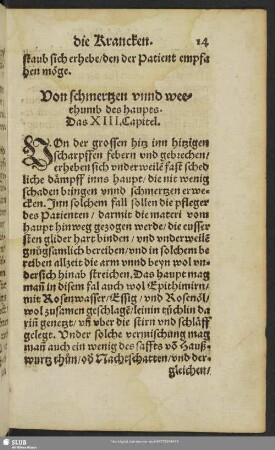 die Krancken. 14
staub sich erhebe/den der Patient empfa
hen möge.
Von schmertzen vnnd wee-
thumb des hauptes.
Das XIII. Capitel.
VOn der grossen hitz inn hitzigen
scharpffen febern vnd gebrechen/
erheben sich vnderweilē fast sched
liche dämpff inns haupt/die nit wenig
schaden bringen vnnd schmertzen erwe-
cken. Inn solchem fall sollen die pfleger
des Patienten/darmit die materi vom
haupt hinweg gezogen werde/die eusser
sten glider hart binden/vnd vnderweilē
gnůgsamlich bereiben/vnd in solchem be
reiben allzeit die arm vnnd beyn wol vn
dersich hinab streichen. Das haupt mag
man in disem fal auch wol Epithimirn/
mit Rosenwasser/Essig/vnd Rosenöl/
wol zusamen geschlagē/leinin tüchlin da
rin̄ genetzt/vn̄ vber die stirn vnd schläff
gelegt. Vnder solche vermischung mag
man auch ein wenig des saffts vō Hauß-
wurtz thůn/oď Nachtschatten/vnd der-
gleichen/
SLUB